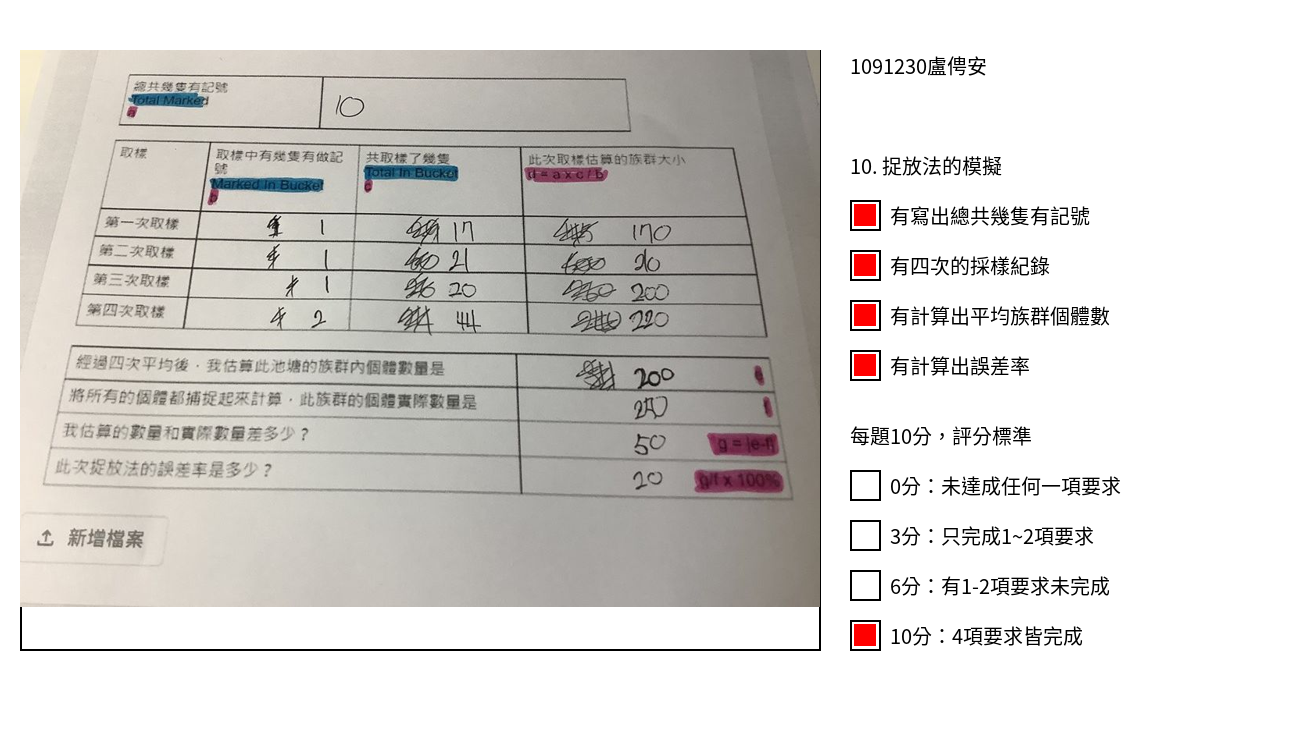 1091230盧俜安
總共幾隻有記號
Total Marked
a
10
取樣
取樣中有幾隻有做記號
Marked In Bucket
b
共取樣了幾隻
Total In Bucket
c
此次取樣估算的族群大小
d = a x c / b
第一次取樣 1 17 170
第二次取樣 1 21
第三次取樣 1 20 200
第四次取樣 2 44 220
經過四次平均後，我估算此池塘的族群內個體數量是 200 e
將所有的個體都捕捉起來計算，此族群的個體實際數量是 f
我估算的數量和實際數量差多少？ 50 g = |e-f|
此次捉放法的誤差率是多少？ 20 g/f x 100%
新增檔案
10. 捉放法的模擬
有寫出總共幾隻有記號
有四次的採樣紀錄
有計算出平均族群個體數
有計算出誤差率
每題10分，評分標準
0分：未達成任何一項要求
3分：只完成1~2項要求
6分：有1-2項要求未完成
10分：4項要求皆完成